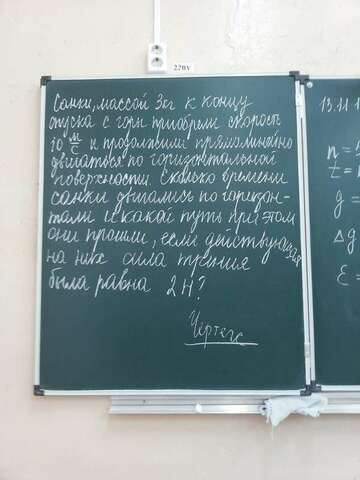 220V
Санки, массой 3кг к концу
спуска с горы приобрели скорость
10 м/с и продолжили прямолинейно
двигаться по горизонтальной
поверхности. Сколько времени
санки двигались по горизон-
тали и какой путь при этом
они прошли, если действующая
на них сила трения
была равна 2Н?
Чертеж
13.11
n =
t =
g =
Δg
ε =